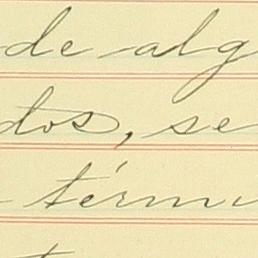 de alg
dos, se
térmi